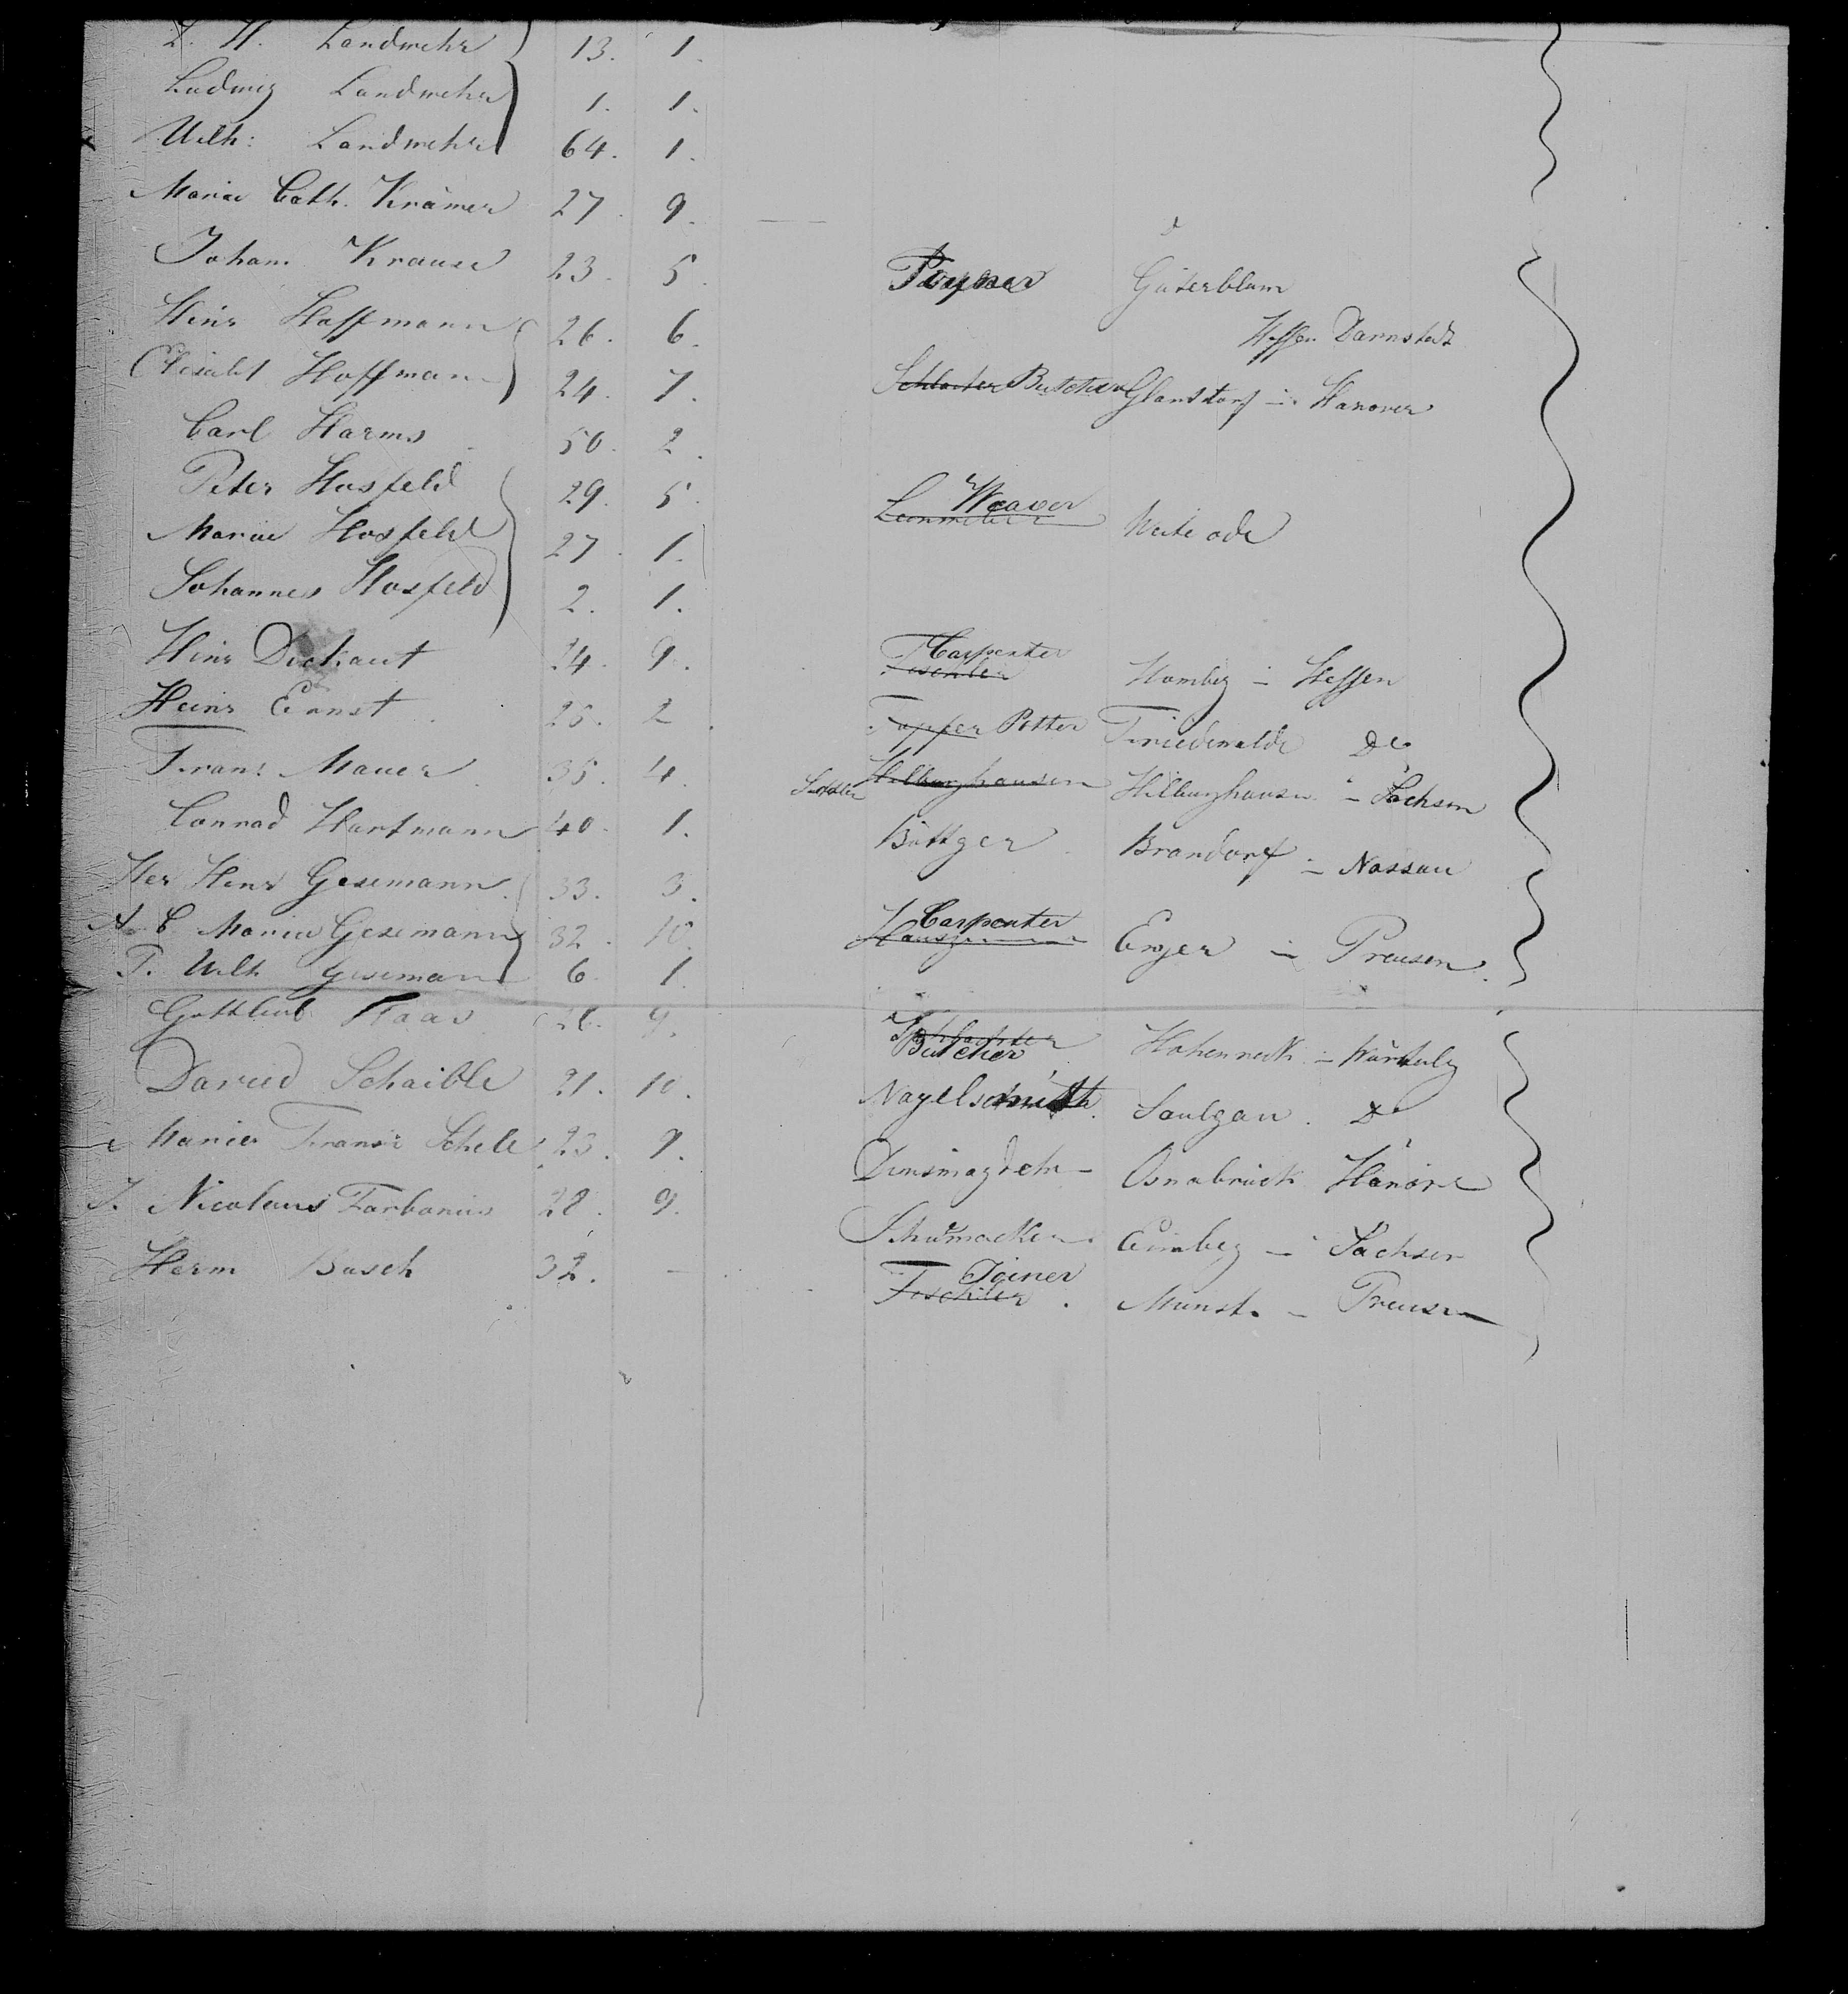 L. H. Landwehr 13. 1.
Ludwig Landwehr 1. 1.
Wilh: Landwehr 64. 1.
Maria Cath. Krämer 27. 9.
Joham Krause 23. 5. Güterblum
Heinr Hoffmann 26. 6. Hessen Darmstadt
Elisabet Hoffmann 24. 7. Schlacter Butcher Glanstorf in Hanover
Carl Harms 50. 2.
Peter Hosfeld 29. 5. Weaver
Maria Hosfeld 27. 1. Leinweber
Johannes Hosfeld 2. 1.
Heinr Dickaut 24. 9. Carpenter Tischler Homberg in Hessen
Heinr Ernst 25. 2. Topfer Potter Friedewalde Do
Franz Mauer 35. 4. Sattler Hilburghausen Hilburghausen in Sachsen
Conrad Hartmann 40. 1. Böttger Brandorf in Nassau
Her Henr Gesemann 33. 3.
A C Maria Gesemann 32. 10. Carpenter Enger in Preusen
F. Wilh Gesemann 6. 1.
Gottlieb Haas 26. 9. Schlachter Butcher Hohenneck in Würtenbg
David Schaible 21. 10. Nagelschmith Saulgau Do
Maria Franzi Schele 23. 9. Osnabrück Hanovre
J. Nicolaus Farbanius 28. 9. Schumacker in Sachsen
Herm Busch 32. — Joiner Tischler Munst. Preusen